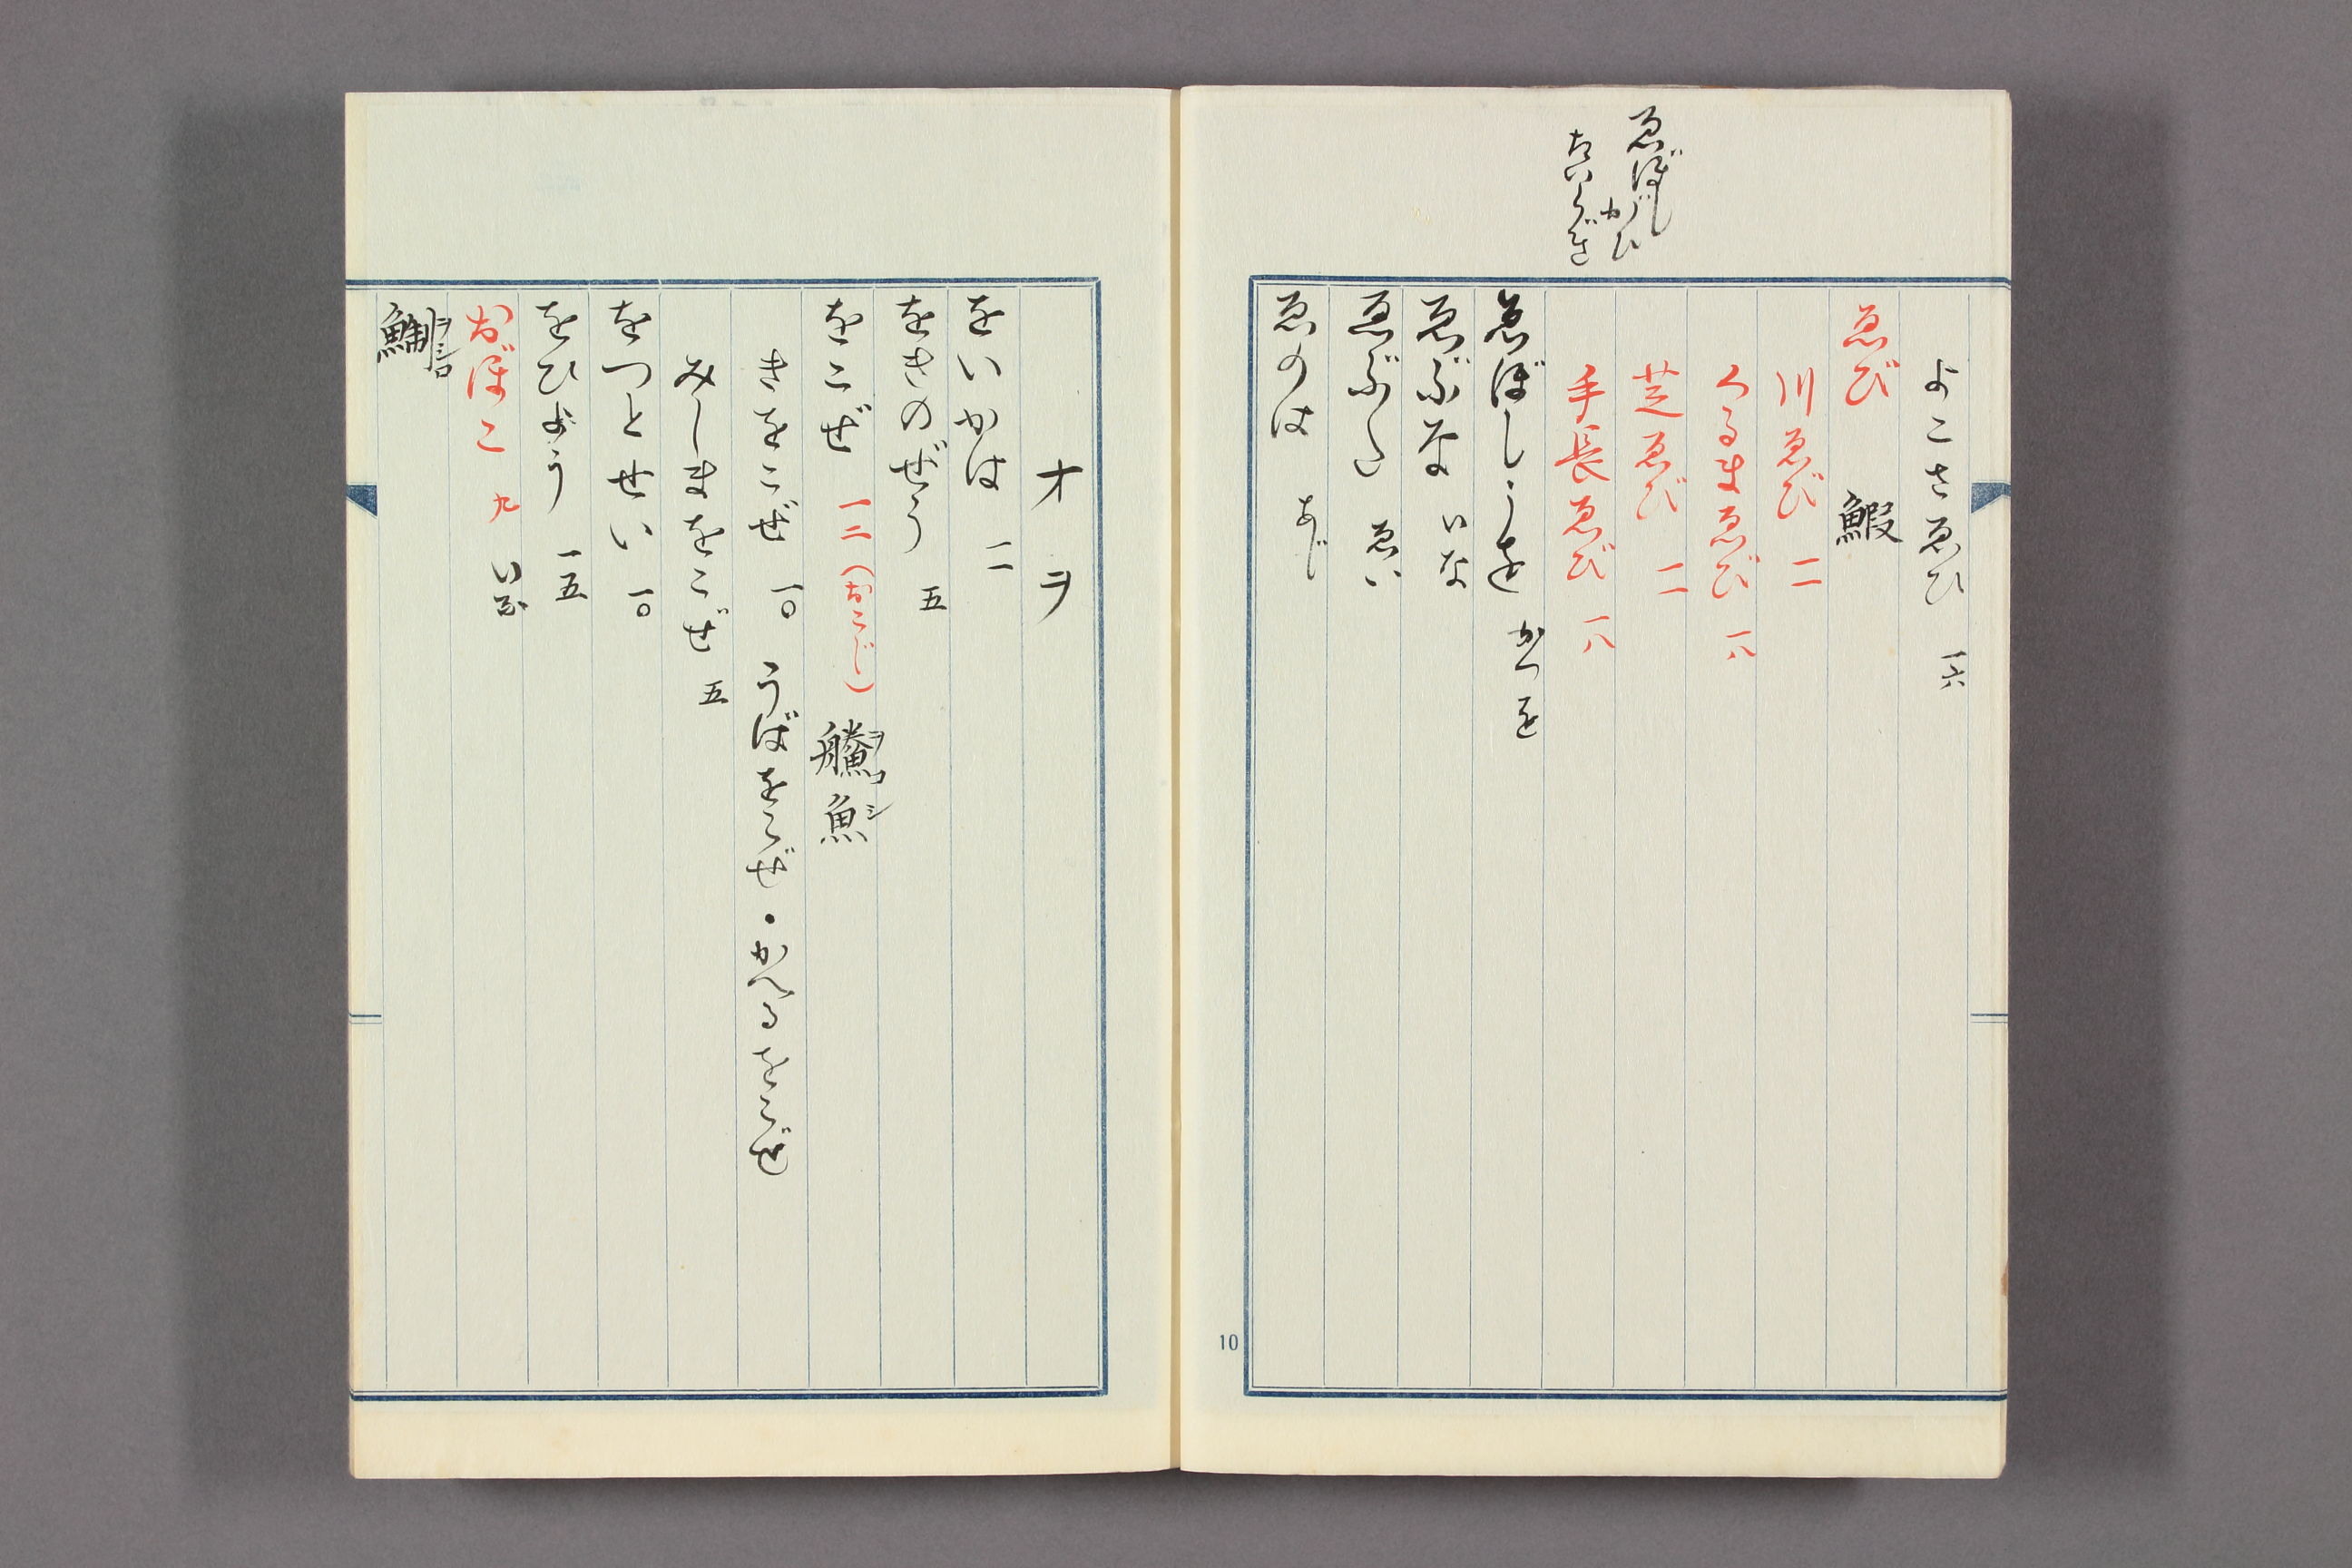 ゑぼし
かひ
たいらぎ
よこさゑひ 一六
ゑび 鰕
川ゑび 二
くるまゑび 一八
芝ゑび 二
手長ゑび 一八
ゑぼしうを かつを
ゑぶな いな
ゑぶた ゑい
ゑのは あじ
10
オ ヲ
をいかは 二
をきのぜう 五
をこぜ 一二(おこじ) 䲍魚 ヲコシ
きをこぜ 一〇 うばをこぜ・かへるをこぜ
みしまをこぜ 五
をつとせい 一〇
をひよう 一五
おぼこ 九 いな
ヲシロ